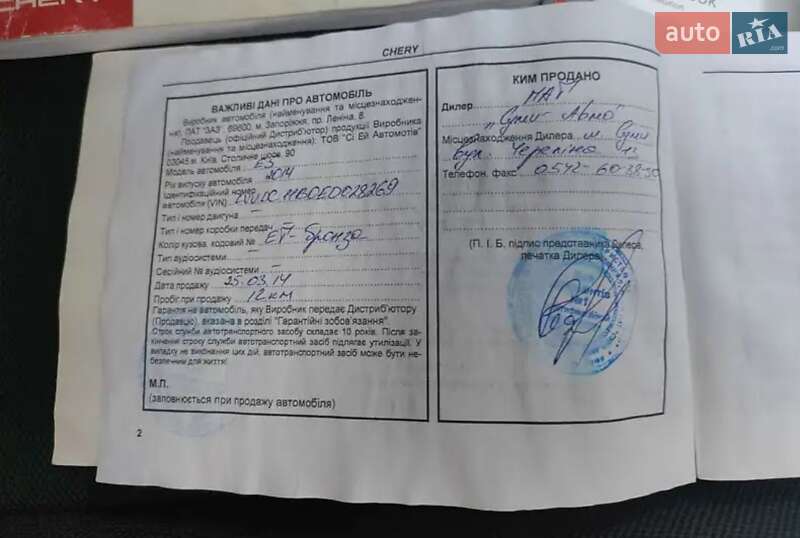 CHERY
auto RIA
.com
CHERY
ВАЖЛИВІ ДАНІ ПРО АВТОМОБІЛЬ
Виробник автомобіля (найменування та місцезнаходжен-
ня): ПАТ "ЗАЗ", 69600, м. Запоріжжя, пр. Леніна, 8
Продавець (офіційний Дистриб'ютор) продукції Виробника
(найменування та місцезнаходження): ТОВ "Сі Ей Автомотів"
03045 м. Київ, Столичне шосе, 90
Модель автомобіля E5
Рік випуску автомобіля 2014
Ідентифікаційний номер
автомобіля (VIN)
Тип / номер двигуна —
Тип / номер коробки передач —
Колір кузова, кодовий № ET - бронза
Тип аудіосистеми —
Серійний № аудіосистеми —
Дата продажу 25.03.14
Пробіг при продажу 12 км
Гарантія на автомобіль, яку Виробник передає Дистриб'ютору
(Продавцю), вказана в розділі "Гарантійні зобов'язання".
Строк служби автотранспортного засобу складає 10 років. Після за-
кінчення строку служби автотранспортний засіб підлягає утилізації. У
випадку не виконання цих дій, автотранспортний засіб може бути не-
безпечним для життя!
М.П.
(заповнюється при продажу автомобіля)
2
КИМ ПРОДАНО
Дилер
"Суми Авто"
Місцезнаходження Дилера м. Суми
вул.
Телефон, факс 0542-60-38-30
(П. І. Б, підпис представника Дилера,
печатка Дилера)